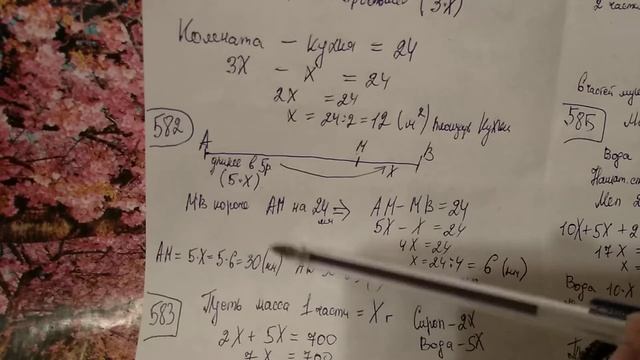 (3·X)
2 части
Комната — кухня = 24
3X — X = 24
2X = 24
X = 24:2 = 12 (м²) Площадь кухни
582
A M B
длинее в 5р X
(5·X)
MB короче AM на 24 мм ⇒ AM – MB = 24
5X – X = 24
4X = 24
X = 24:4 = 6 (мм)
AM = 5·X = 5·6 = 30 (мм)
583
Пусть масса 1 части = X г
2X + 5X = 700
7X = 700
Сироп – 2X
Вода – 5X
585
Вода
10X + 5X + 2
17X =
X =
Вода 10·X